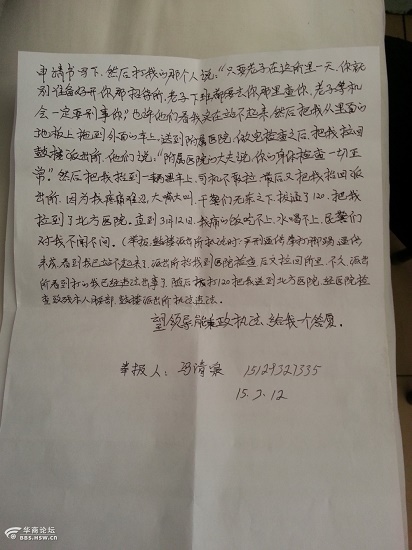 申请书写下,然后打我的那个人说:“只要老子在这所里一天,你就
别准备好开你那招待所,老子下班都要去你那里查你,老子等机
会一定要刑事你。”也许他们看我实在站不起来,然后把我从里面的
地板上拖到外面的车上,送到附属医院,做完检查之后,把我拉回
鼓楼派出所,他们说:“附属医院的大夫说,你的身体检查一切正
常。”然后把我拉到一辆车上,司机不敢拉,最后又把我抬回派
出所,因为我疼痛难忍,大喊大叫,干警们无奈之下,拨通了120,把我
拉到了北方医院,直到3月12日,我痛的饭吃不上,水喝不上,民警们
对我不闻不问。(举报,鼓楼派出所执法
来后,看到我已站不起来了,派出所拉我到医院检查后又拉回所里,不久,派出
所看到打的我已经违法出事了,随后打120把我送到北方医院,经医院检
查致残本人,鼓楼派出所执法违法。
望领导能政执法,给我一个答复。
举报人:冯清 15129327335
15.3.12
华商论坛
bbs.hsw.cn